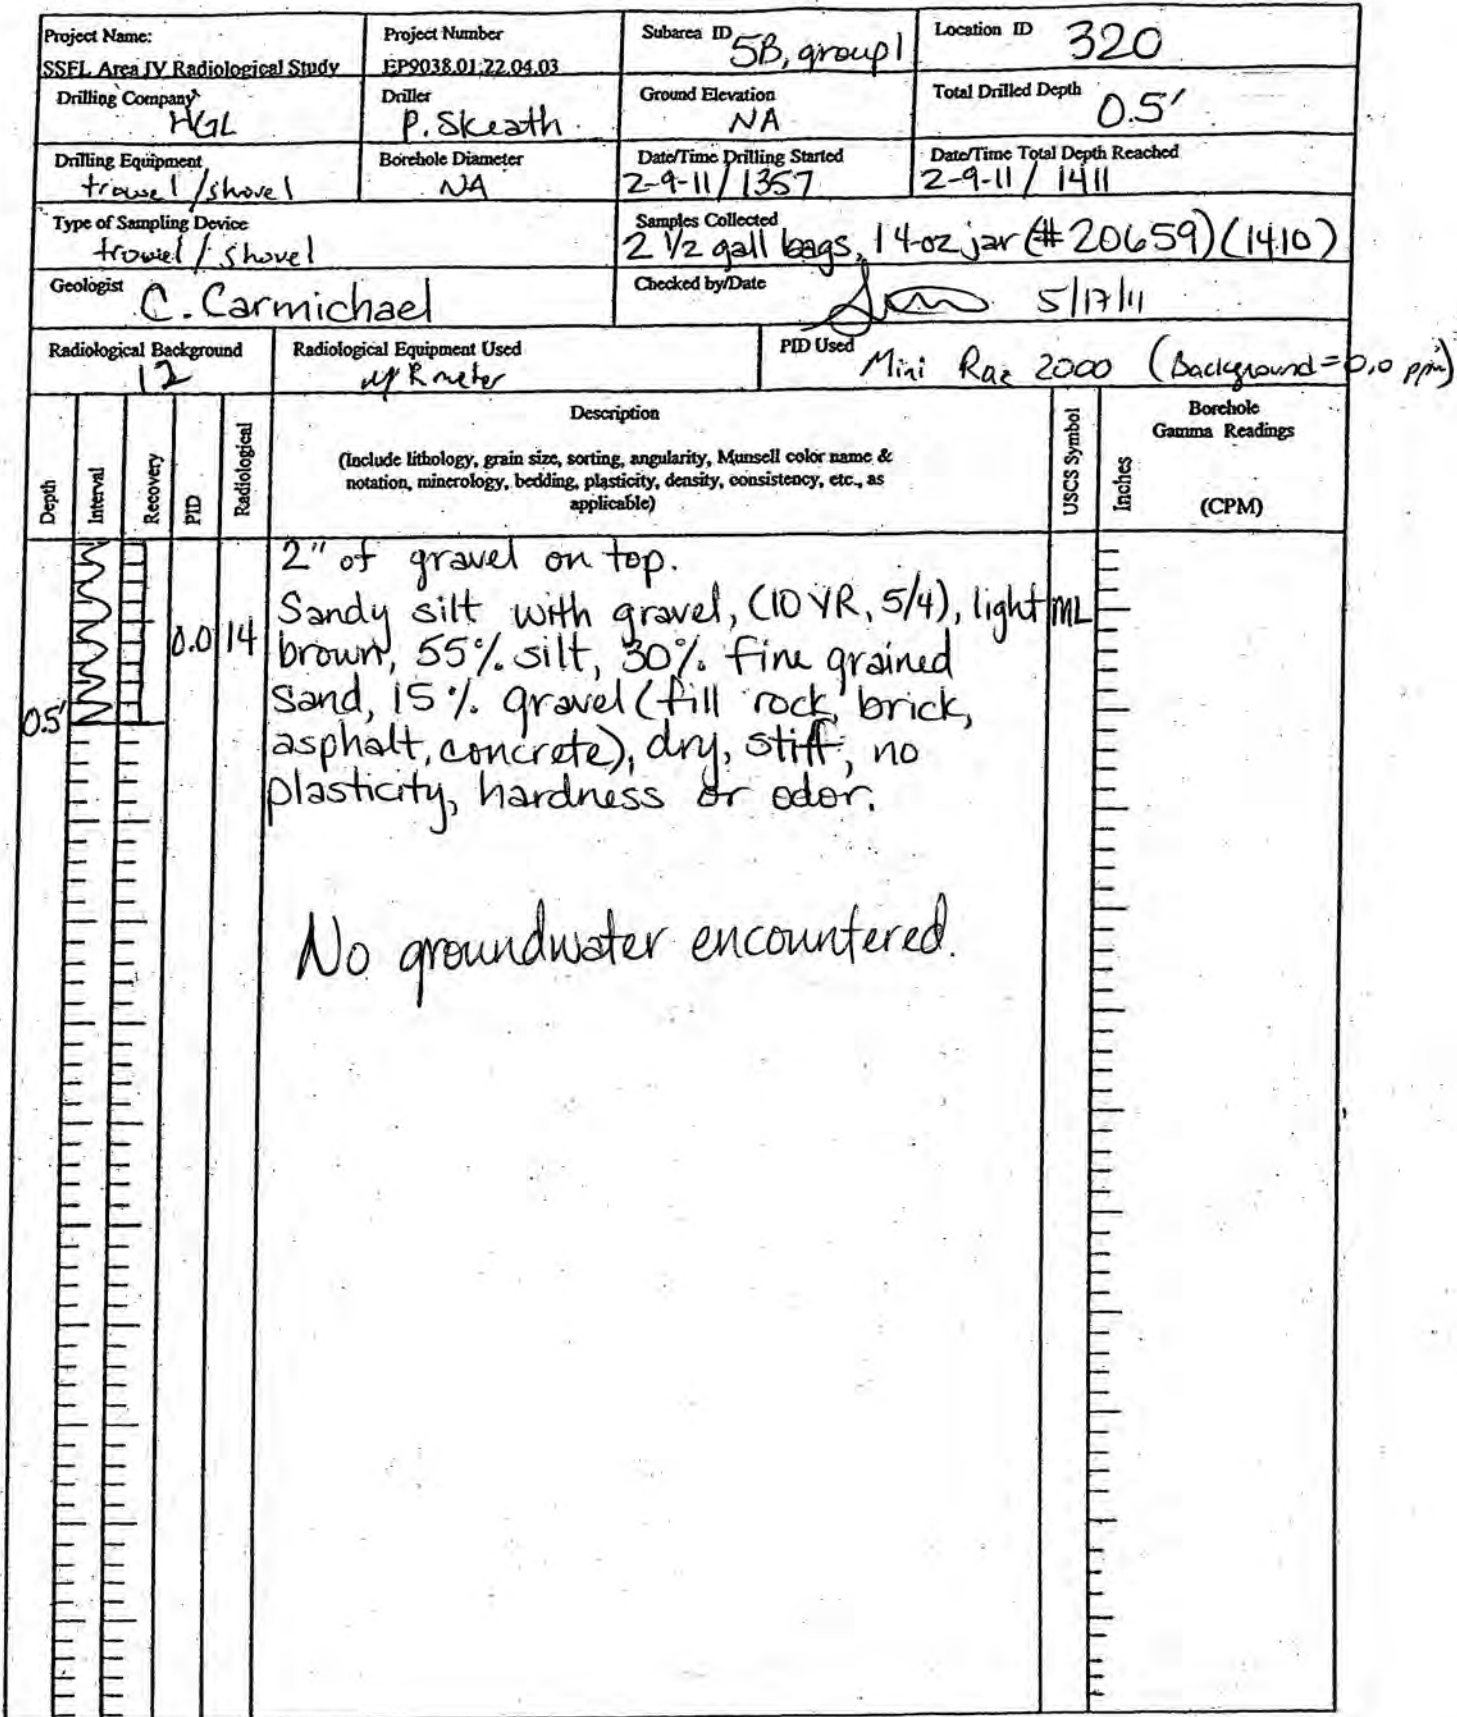 Project Name:
SSFL Area IV Radiological Study
Project Number
EP9038.01.22.04.03
Subarea ID 5B, group 1
Location ID 320
Drilling Company
HGL
Driller
P. Skeath
Ground Elevation
NA
Total Drilled Depth 0.5'
Drilling Equipment
trowel / shovel
Borehole Diameter
NA
Date/Time Drilling Started
2-9-11 / 1357
Date/Time Total Depth Reached
2-9-11 / 1411
Type of Sampling Device
trowel / shovel
Samples Collected
2 1/2 gall bags, 1 4-oz jar (#20659) (1410)
Geologist C. Carmichael
Checked by/Date 5/17/11
Radiological Background
12
Radiological Equipment Used
R meter
PID Used Mini Rae 2000 (Background = 0.0 ppm)
Depth
Interval
Recovery
PID
Radiological
Description
(Include lithology, grain size, sorting, angularity, Munsell color name &
notation, minerology, bedding, plasticity, density, consistency, etc., as
applicable)
USCS Symbol
Inches
Borehole
Gamma Readings
(CPM)
2" of gravel on top.
Sandy silt with gravel, (10 YR, 5/4), light
brown, 55% silt, 30% fine grained
sand, 15% gravel (fill rock, brick,
asphalt, concrete), dry, stiff, no
plasticity, hardness or odor.
0.0
14
ML
0.5'
No groundwater encountered.